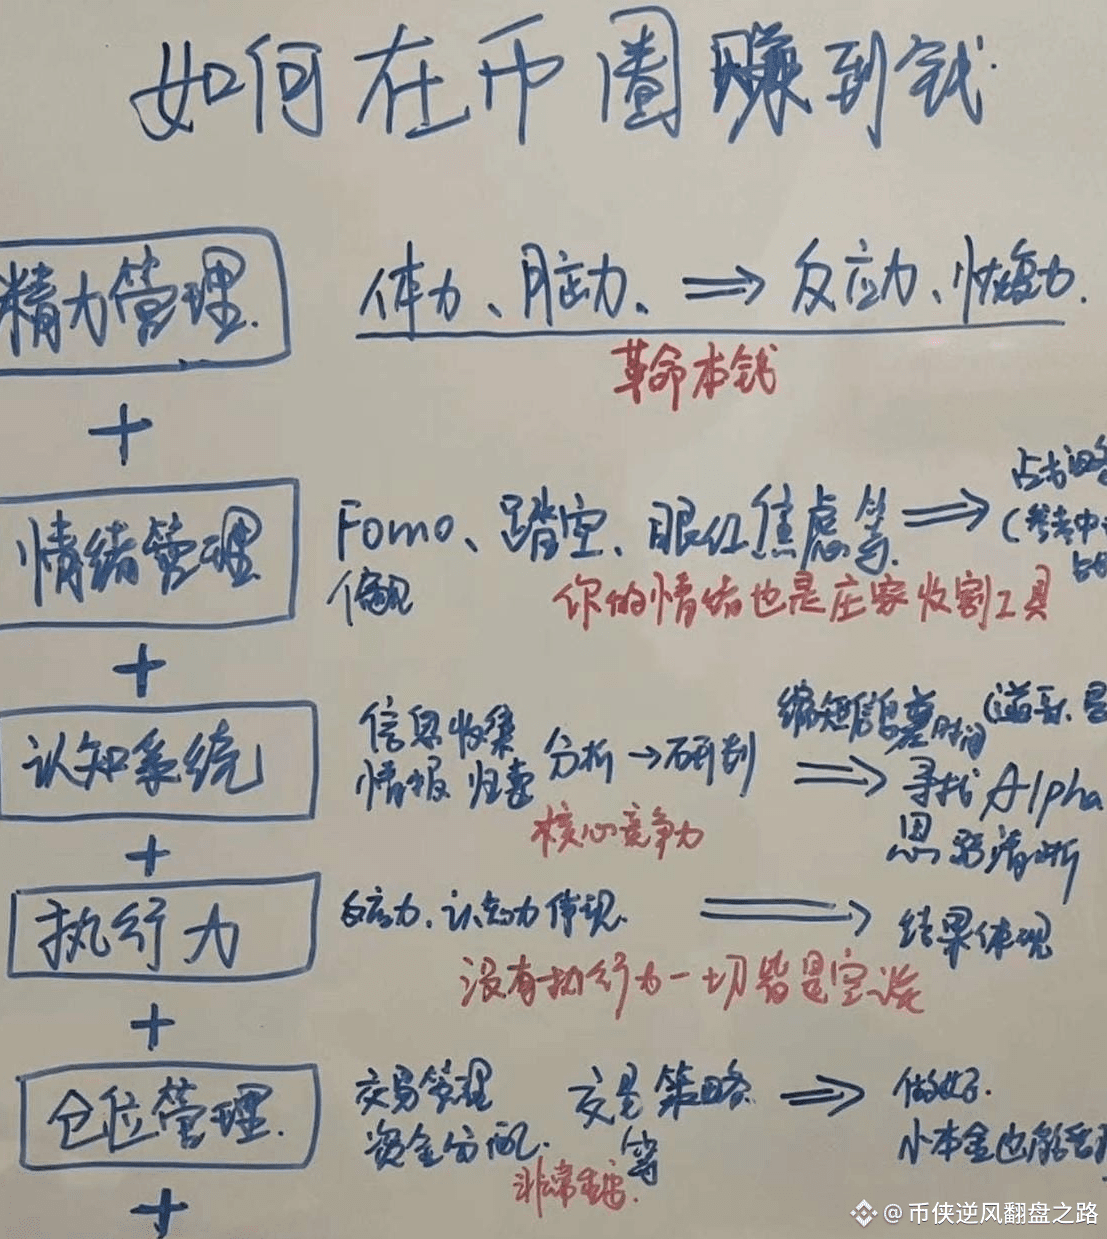 如何在币圈赚到钱.
精力管理.
体力、脑力、⇒反应力、恢复力.
革命本钱
+
情绪管理
Fomo、踏空、眼红焦虑等.⇒
偏见
(参考中
你的情绪也是庄家收割工具
+
认知系统
信息收集
情报归集
分析→研判
⇒
缩短信息差时间
寻找Alpha
思路清晰
核心竞争力
+
执行力
反应力.认知力体现.⇒结果体现
没有执行力一切皆是空谈
+
仓位管理.
交易管理
资金分配.
交易策略
等
⇒
做好.
小本金也能
非常重要.
+
@币侠逆风翻盘之路